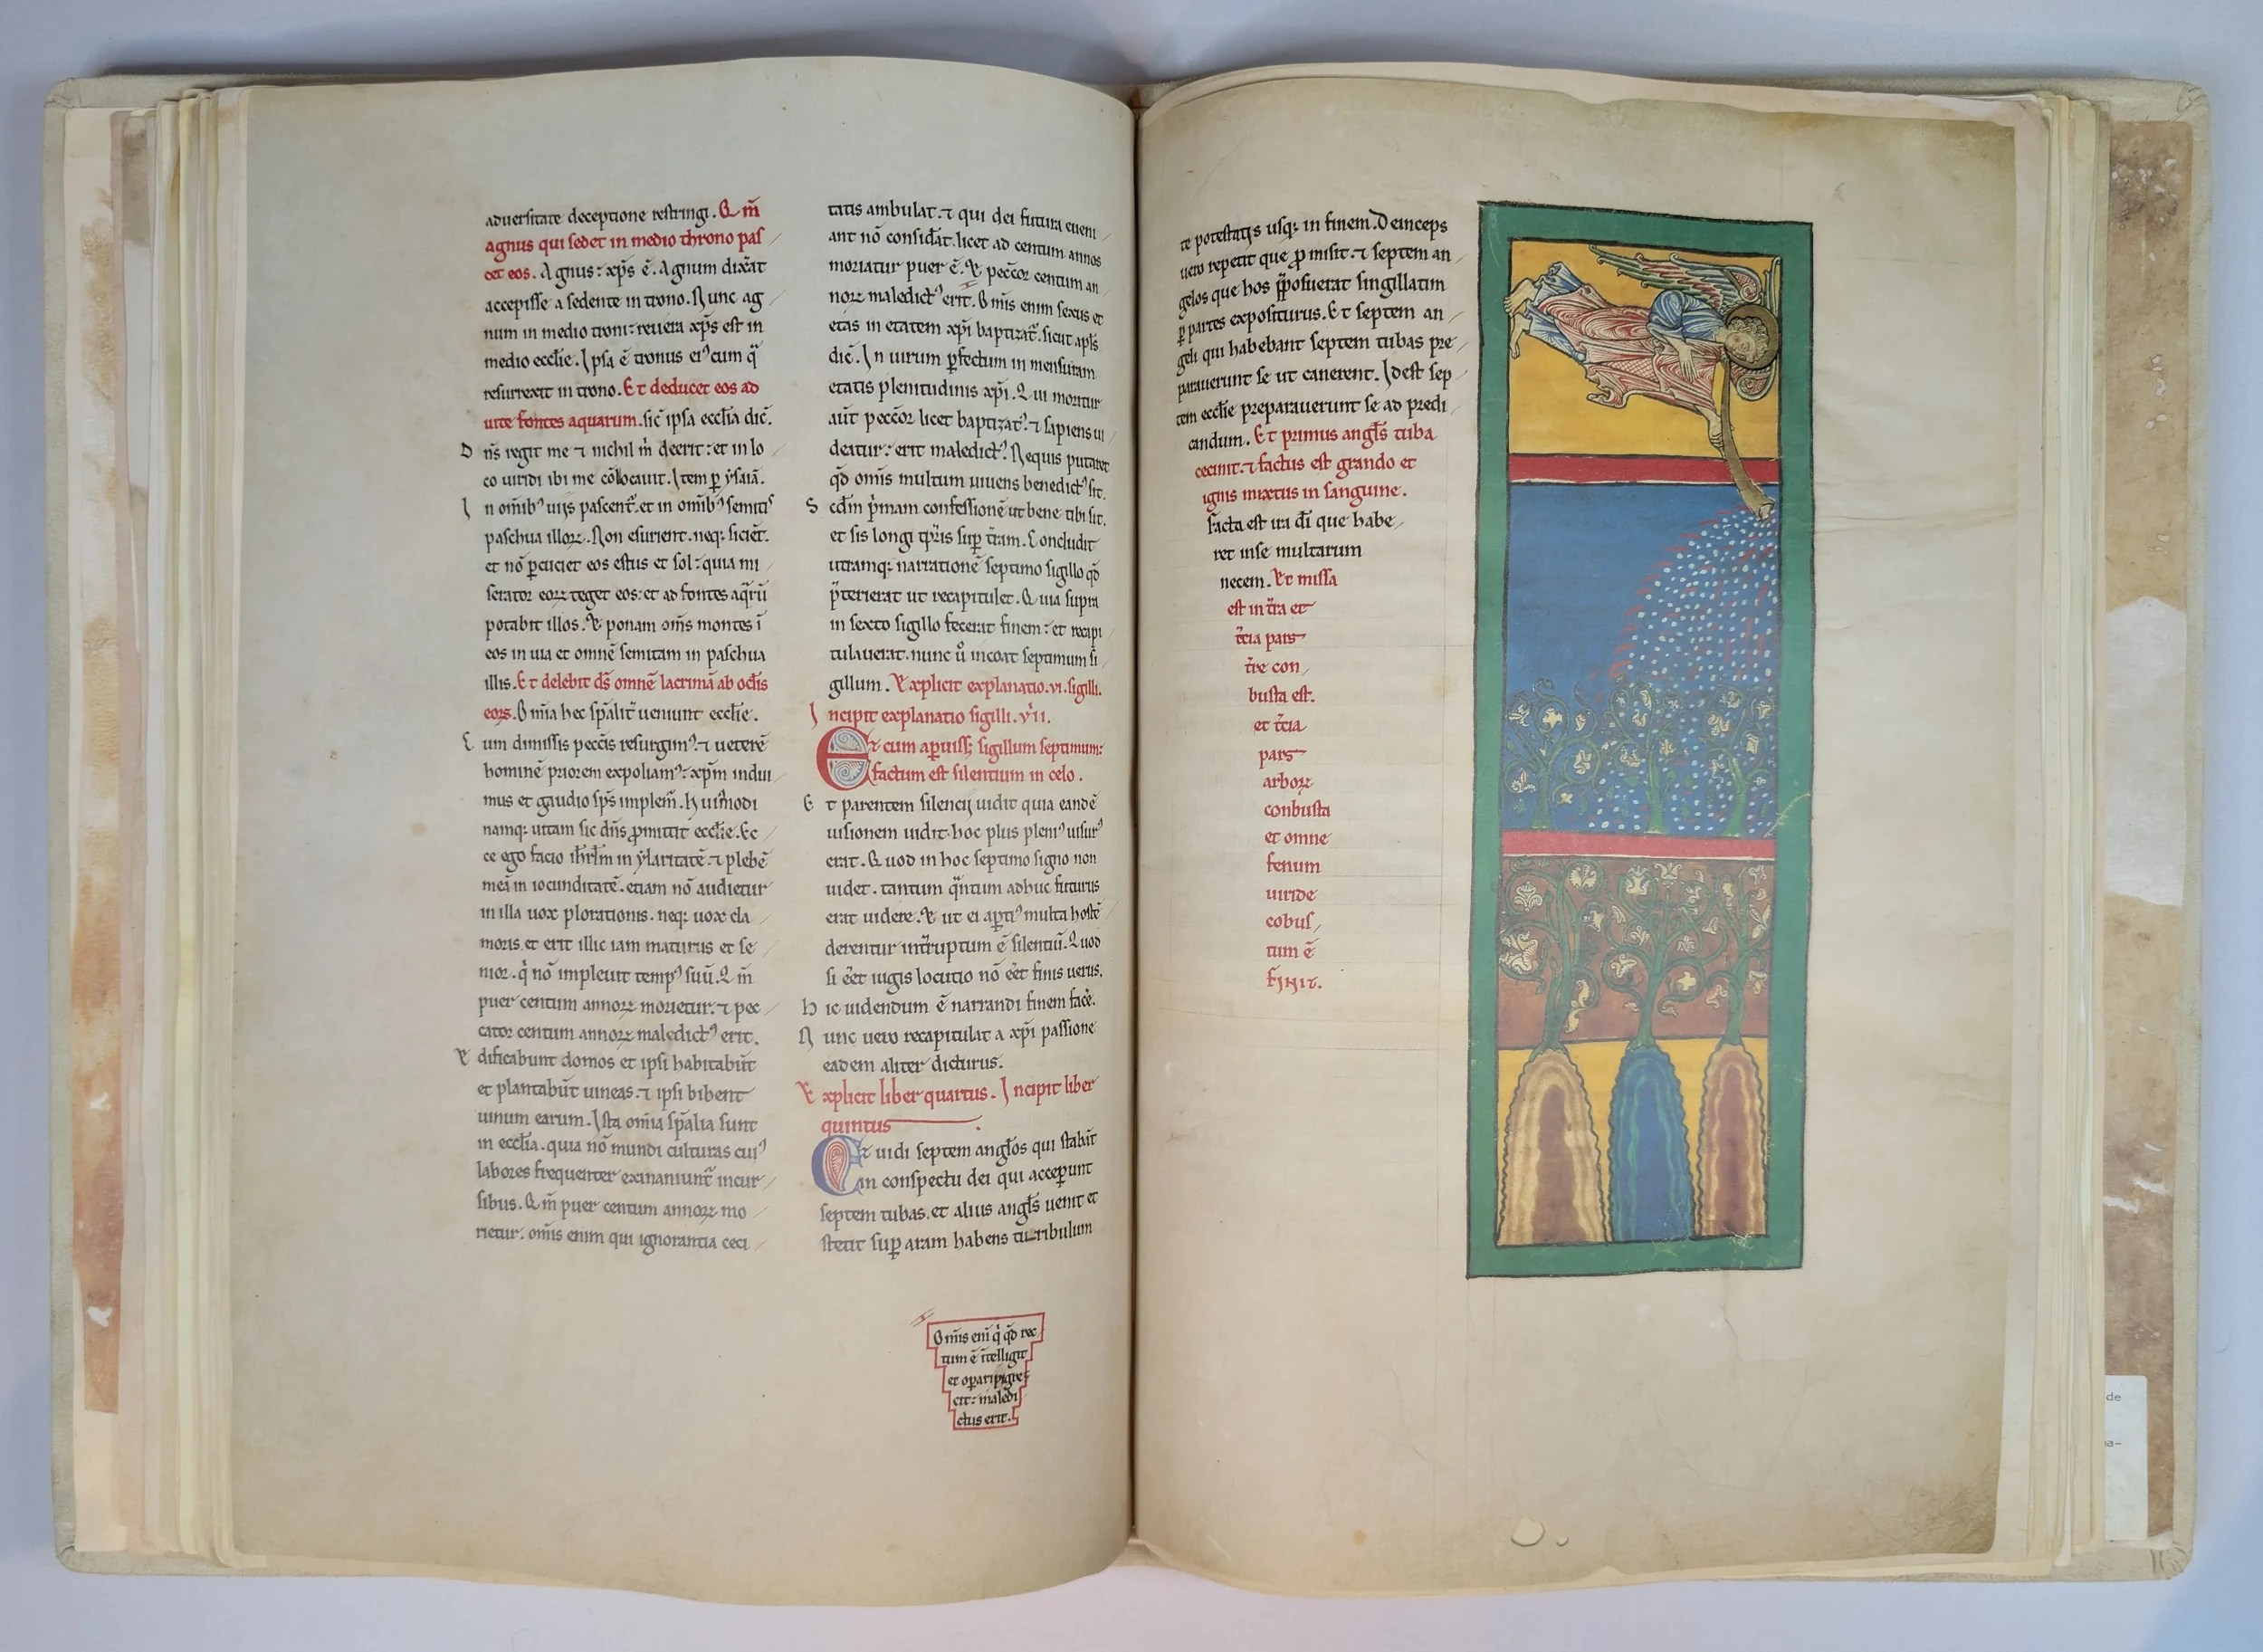 aduersitate deceptione restringi. Q m̄
agnus qui sedet in medio throno pas
cet eos. Agnus: xp̄s ē. Agnum dixerat
accepisse a sedente in trono. Nunc ag
num in medio troni: reuera xp̄s est in
medio eccl̄ie. Ipsa ē tronus ei᾿ cum
resurrexit in trono. Et deducet eos ad
uite fontes aquarum. sic̄ ipsa eccl̄ia dic̄.
Dn̄s regit me ⁊ nichil m̄ deerit: et in lo
co uiridi ibi me cōlocauit. Item ꝑ ẏsaiā.
In om̄ib᾿ uijs pascent̄. et in om̄ib᾿ semitis
paschua illoꝝ. Non esurient. neq: sicient.
et nō ꝑcuciet eos estus et sol: quia mi
serator eoꝝ teget eos: et ad fontes aq̄rū
potabit illos. Et ponam om̄s montes ī
eos in uia et omnē semitam in paschua
illis. Et delebit ds̄ omnē lacrimā ab oclis
eoꝝ. Omia hec sp̄alit̄ ueniunt eccl̄ie.
Cum dimissis pecc̄is resurgim᾿: ⁊ ueterē
hominē priorem expoliam᾿: xp̄m indui
mus et gaudio sp̄s implem̄. Huīmodi
namq: uitam sic dn̄s ꝓmittit eccl̄ie. Ec
ce ego facio ihrl̄m in ẏlaritatē: ⁊ plebē
meā in iocunditatē. etiam nō audietur
in illa uox plorationis. neq: uox cla
moris. et erit illic iam maturus et se
nior. q̇ nō impleuit temp᾿ suū. Q m̄
puer centum annoꝝ morietur: ⁊ pec
cator centum annoꝝ maledict᾿ erit.
Edificabunt domos et ipsi habitabūt
et plantabūt uineas. ⁊ ipsi bibent
uinum earum. Ista omīa sp̄alia sunt
in eccl̄ia. quia nō mundi culturas cui᾿
labores frequenter exinaniunt̄ incur
sibus. Q m̄ puer centum annoꝝ mo
rietur. om̄is enim qui ignorantia ceci
tatis ambulat. ⁊ qui dei futura eueni
ant nō considāt. licet ad centum annos
moriatur puer ē. Et pecc̄or centum an
noꝝ maledict᾿ erit. Om̄is enim sexus et
etas in etatem xp̄i baptizat̄. sicut apl̄s
dic̄. In uirum ꝑfectum in mensuram
etatis plenitudinis xp̄i. Qui moritur
aūt pecc̄or licet baptizat᾿: ⁊ sapiens ui
deatur: erit maledict᾿. Nequis putaret
qd̄ om̄is multum uiuens benedict᾿ sit.
Scd̄m p̄mam confessionē ut bene tibi sit.
et sis longi tp̄ris suꝑ t̄ram. Concludit
utramq: narrationē septimo sigillo qd̄
p̄terierat ut recapitulet. Quia supra
in sexto sigillo fecerat finem: et recapi
tulauerat. nunc ů incoat septimum si
gillum. Explicit explanatio. vi. sigilli.
Incipit explanatio sigilli. vii.
Et cum aꝑuiss; sigillum septimum:
factum est silentium in celo.
Et parentem silencij uidit quia eandē
uisionem uidit. hoc plus plení uisur᾿
erat. Quod in hoc septimo signo non
uidet. tantum q̄ntum adhuc futurus
erat uidere. Et ut ei aꝑti᾿ multa hostē
derentur int̄ruptum ē silentiū. Quod
si eēt iugis locutio nō eēt finis uerus.
Hic uidendum ē narrandi finem facē.
Nunc uero recapitulat a xp̄i passione
eadem aliter dicturus.
Explicit liber quartus. Incipit liber
quintus.
Et uidi septem angl̄os qui stabūt
in conspectu dei qui acceꝑunt
septem tubas. et alius angl̄s uenit et
stetit suꝑ aram habens turibulum
Om̄is eni q̇ qd̄ rec
tum ē ītelligit
et oꝑari pigres
cit: maledi
ctus erit.
te potestatis usq: in finem. Deinceps
uero repetit que ꝓmisit. ⁊ septem an
gelos que hos p̄posuerat singillatim
ꝑ partes expositurus. Et septem an
geli qui habebant septem tubas pre
parauerunt se ut canerent. Idest sep
tem eccl̄ie preparauerunt se ad predi
candum. Et primus angl̄s tuba
cecinit. ⁊ factus est grando et
ignis mixtus in sanguine.
facta est ira dī que habe
ret inse multarum
necem. Et missa
est in t̄ra et
t̄cia pars
t̄re con
busta est.
et t̄cia
pars
arboꝝ
conbusta
et omne
fenum
uiride
cobus
tum ē
FINIT.
de
na-